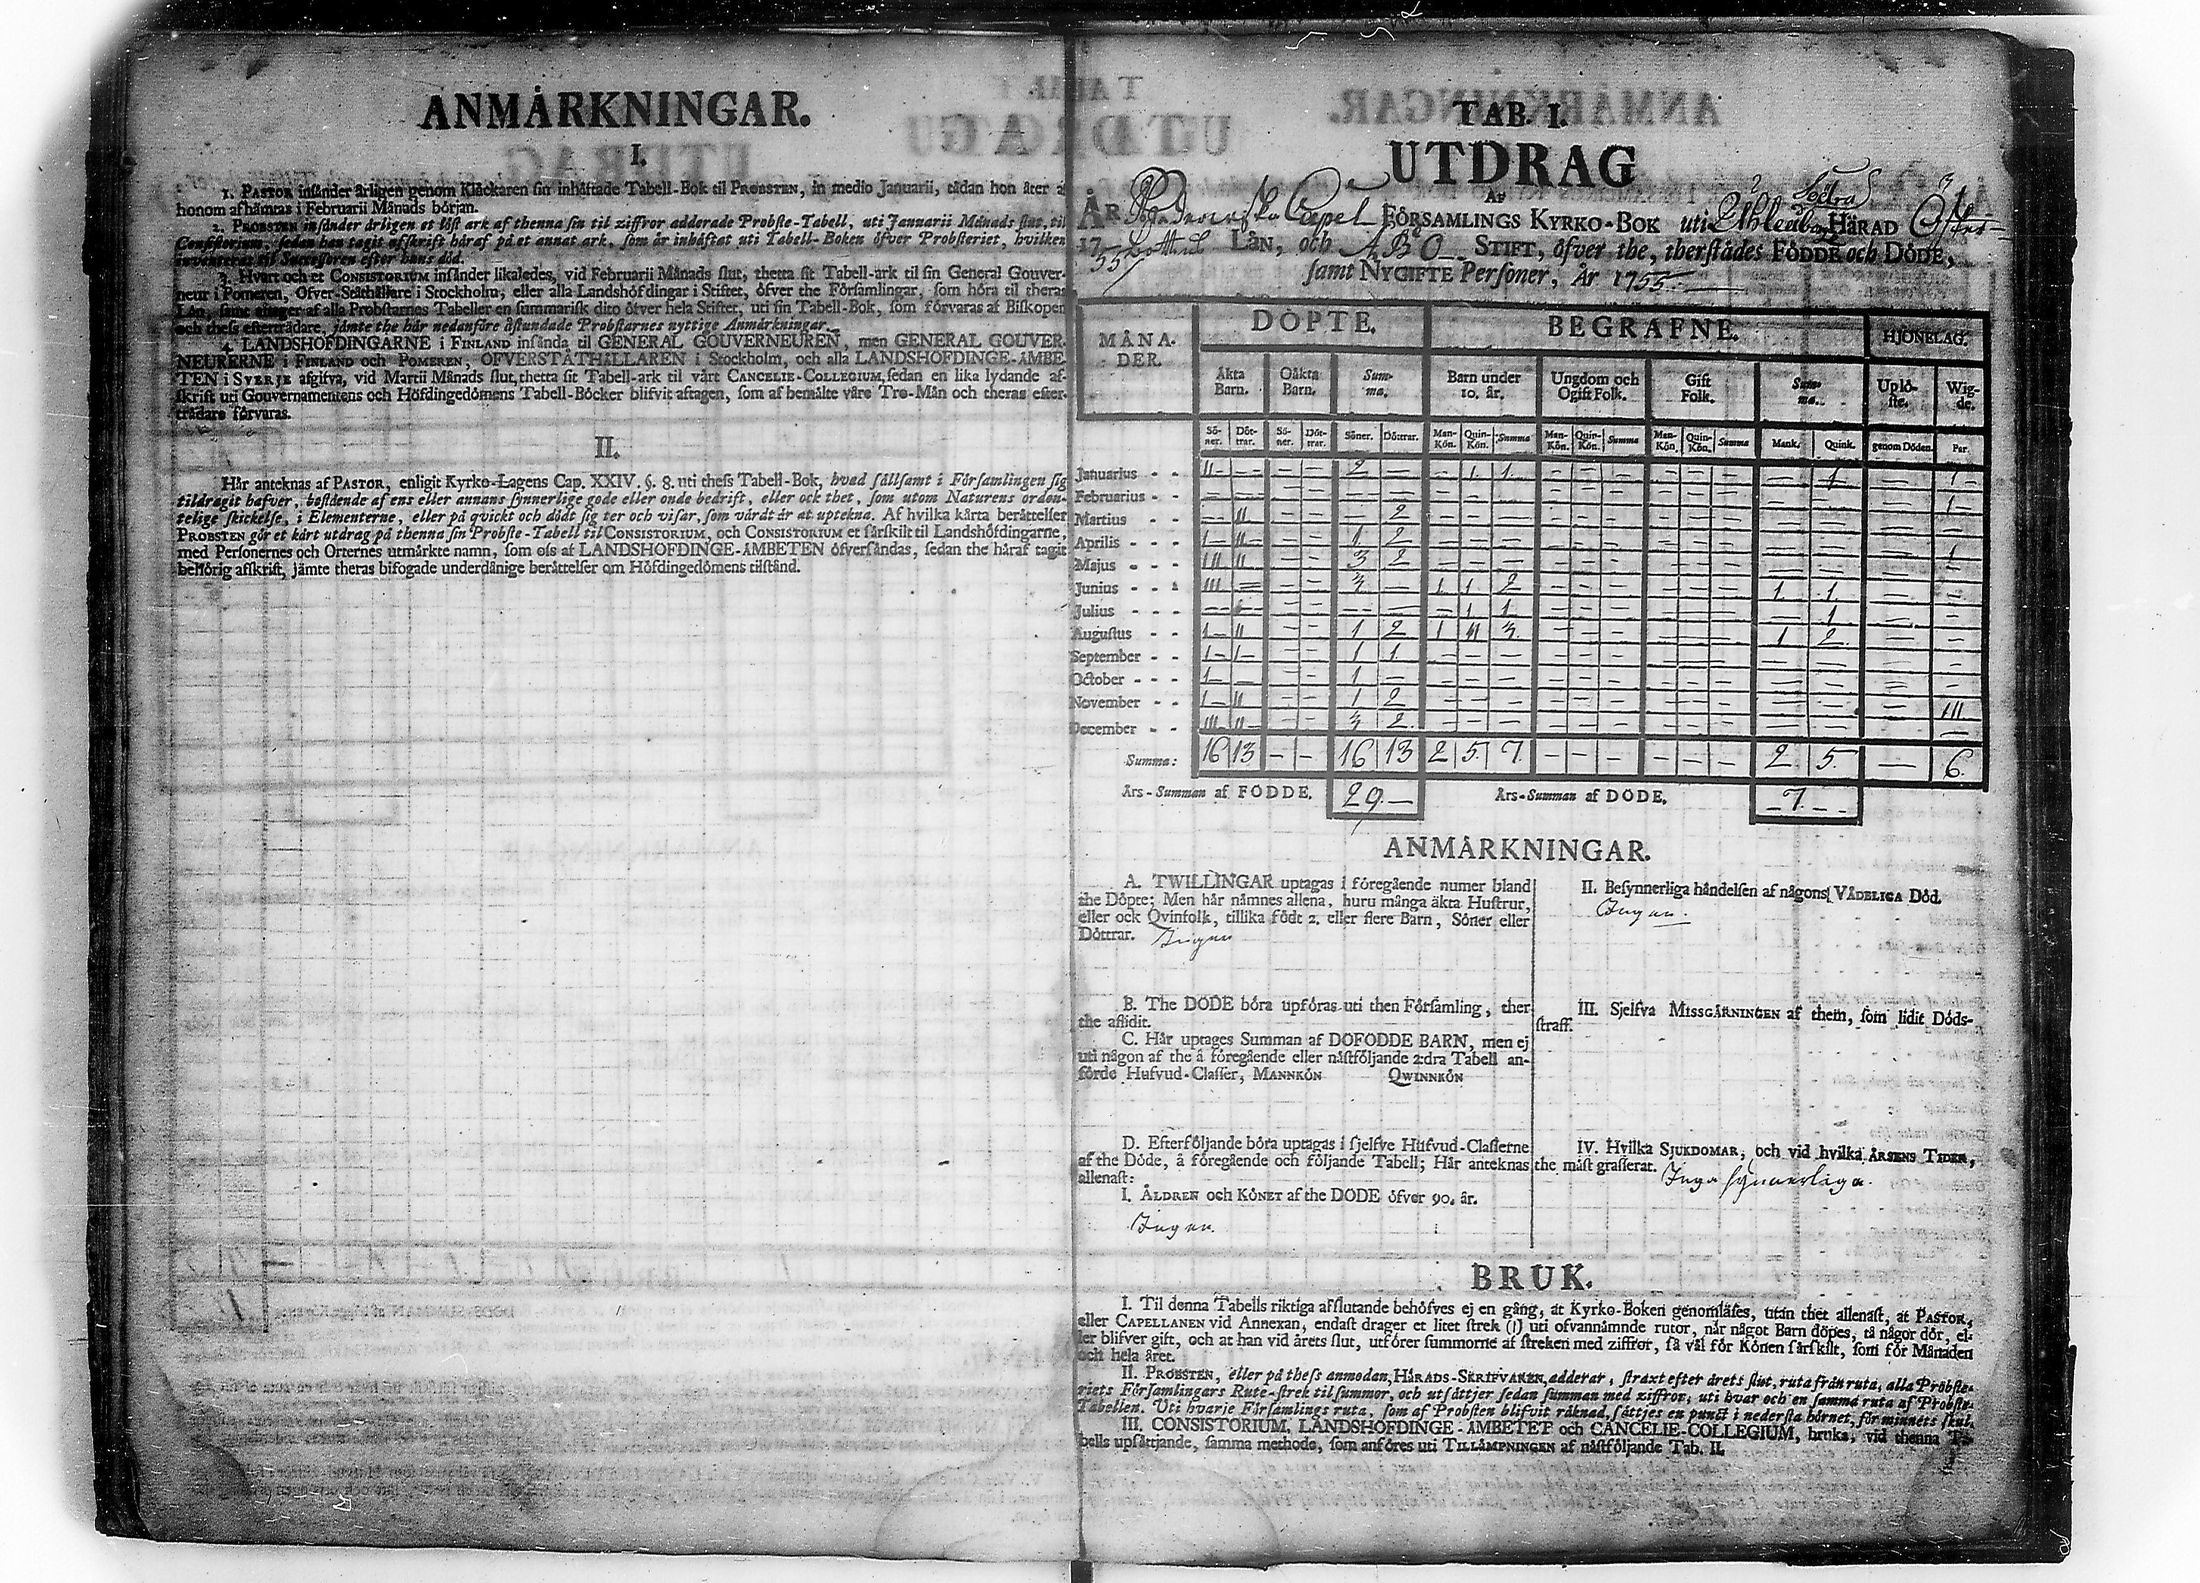 ANMÅRKNINGAR.
I.
1. PASTOR insånder årligen genom Klåckaren sin inhåftade Tabell-Bok til PROBSTEN, in medio Januarii, tådan hon åter af
honom afhåmtas i Februarii Månads början.
2. PROBSTEN insånder årligen et löst ark af thenna sin til ziffror adderade Probste-Tabell, uti Januarii Månads slut, til
Consistorium, sedan han tagit afskrift håraf på et annat ark, som år inhåftat uti Tabell-Boken öfver Probsteriet, hvilken
inventeras til Successoren efter hans död.
3. Hvart och et CONSISTORIUM insånder likaledes, vid Februarii Månads slut, thetta sit Tabell-ark til sin General Gouver-
neur i Pomeren, Öfver-Ståthållare i Stockholm, eller alla Landshöfdingar i Stiftet, öfver the Församlingar, som höra til theras
Lån, samt aftager af alla Probstarnes Tabeller en summarisk dito öfver hela Stiftet, uti sin Tabell-Bok, som förvaras af Biskopen
och thess efterträdare, jämte the hår nedanföre åstundade Probstarnes nyttige Anmårkningar.
4. LANDSHÖFDINGARNE i FINLAND insånda til GENERAL GOUVERNEUREN, men GENERAL GOUVER-
NEURERNE i FINLAND och POMEREN, ÖFVERSTÅTHÅLLAREN i Stockholm, och alla LANDSHÖFDINGE-ÅMBE-
TEN i SVERJE afgifva, vid Martii Månads slut, thetta sit Tabell-ark til vårt CANCELIE-COLLEGIUM, sedan en lika lydande af-
skrift uti Gouvernamentens och Höfdingedömens Tabell-Böcker blifvit aftagen, som af bemålte våre Tro-Mån och theras efter-
trådare förvaras.
II.
Hår anteknas af PASTOR, enligit Kyrko-Lagens Cap. XXIV. §. 8. uti thess Tabell-Bok, hvad sållsamt i Församlingen sig
tildragit hafver, bestående af ens eller annans synnerlige gode eller onde bedrift, eller ock thet, som utom Naturens orden-
telige skickelse, i Elementerne, eller på qvickt och dödt sig ter och visar, som vårdt år at uptekna. Af hvilka kårta beråttelser
PROBSTEN gör et kårt utdrag på thenna sin Probste-Tabell til CONSISTORIUM, och CONSISTORIUM et sårskilt til Landshöfdingarne,
med Personernes och Orternes utmårkte namn, som oss af LANDSHÖFDINGE-ÅMBETEN öfversåndas, sedan the håraf tagit
behörig afskrift, jåmte theras bifogade underdånige beråttelser om Höfdingedömens tilstånd.
TAB. I.
UTDRAG
AF
ÅR Capel FÖRSAMLINGS KYRKO-BOK uti HÅRAD Öster-
1755 bottns LÅN, och ÅBO STIFT, öfver the, therstådes FÖDDE och DÖDE,
samt NYGIFTE Personer, År 1755.
MÅNA- DER. DÖPTE. BEGRAFNE. HJONELAG.
Åkta Barn. Oåkta Barn. Sum- ma. Barn under 10. år. Ungdom och Ogift Folk. Gift Folk. Sum- ma. Uplö- ste. Wig- de.
Sö- ner. Döt- trar. Sö- ner. Döt- trar. Söner. Döttrar. Man- Kön. Quin- Kön. Summa Man- Kön. Quin- Kön. Summa Man- Kön. Quin- Kön. Summa Mank. Quink. genom Döden. Par
Januarius - - II — — — 2 — — 1 1 — — — — — — — 1 — 7
Februarius - - — — — — — — — — — — — — — — — — — — 1
Martius - - — II — — — 2 — — — — — — — — — — — — —
Aprilis - - I II — — 1 2 — — — — — — — — — — — — 1
Majus - - III II — — 3 2 — — — — — — — — — — — — —
Junius - - III — — — 3 — 1 1 2 — — — — — — 1 1 — —
Julius - - — — — — — — — 1 1 — — — — — — — 1 — —
Augustus - - I II — — 1 2 I II 3 — — — — — — 1 2 — —
September - - I I — — 1 1 — — — — — — — — — — — — —
October - - - I — — — 1 — — — — — — — — — — — — — —
November - - I II — — 1 2 — — — — — — — — — — — — III
December - - III II — — 3 2 — — — — — — — — — — — — —
Summa: 16 13 — — 16 13 2 5 7 — — — — — — 2 5 — 6
Års-Summan af FÖDDE. 29 Års-Summan af DÖDE. 7
ANMÅRKNINGAR.
A. TWILLINGAR uptagas i föregående numer bland
the Döpte; Men hår nåmnes allena, huru många åkta Hustrur,
eller ock Qvinfolk, tillika födt 2. eller flere Barn, Söner eller
Döttrar. Ingen
B. The DÖDE böra upföras uti then Församling, ther
the aflidit.
C. Hår uptages Summan af DÖFÖDDE BARN, men ej
uti någon af the å föregående eller nåstföljande 2:dra Tabell an-
förde Hufvud-Classer, MANNKÖN QWINNKÖN
D. Efterföljande böra uptagas i sjelfve Hufvud-Classerne
af the Döde, å föregående och följande Tabell; Hår anteknas
allenast:
I. ÅLDREN och KÖNET af the DÖDE öfver 90. år.
Ingen.
II. Besynnerliga håndelsen af någons VÅDELIGA Död.
Ingen.
III. Sjelfva MISSGÅRNINGEN af them, som lidit Döds-
straff.
IV. Hvilka SJUKDOMAR, och vid hvilka ÅRSENS TIDER,
the måst grasserat. Inga synnerliga.
BRUK.
I. Til denna Tabells riktiga afslutande behöfves ej en gång, at Kyrko-Boken genomlåses, utan thet allenast, at PASTOR,
eller CAPELLANEN vid Annexan, endast drager et litet strek (I) uti ofvannåmnde rutor, når något Barn döpes, tå någor dör, el-
ler blifver gift, och at han vid årets slut, utförer summorne af streken med ziffror, så vål för Könen sårskilt, som för Månaden
och hela året.
II. PROBSTEN, eller på thess anmodan, HÅRADS-SKRIFVAREN, adderar, straxt efter årets slut, ruta från ruta, alla Probste-
riets Församlingars Rute-strek til summor, och utsåttjer sedan summan med ziffror, uti hvar och en samma ruta af Probste-
Tabellen. Uti hvarje Församlings ruta, som af Probsten blifvit råknad, såttjes en punct i nedersta hörnet, för minnets skul.
III. CONSISTORIUM, LANDSHÖFDINGE-ÅMBETET och CANCELIE-COLLEGIUM, bruka, vid thenna Ta-
bells upsåttjande, samma methode, som anföres uti TILLÅMPNINGEN af nåstföljande Tab. II.